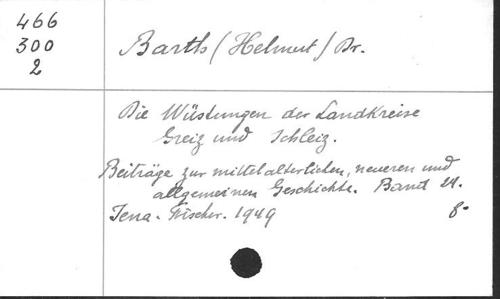 466
300
2
Barth (Helmut) Dr.
Die Wüstungen der Landkreise
Greiz und Schleiz.
Beiträge zur mittelalterlichen, neueren und
allgemeinen Geschichte. Band 24.
Jena. Fischer. 1949
8°